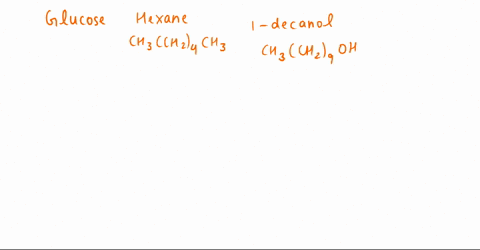 Glucose Hexane 1-decanol
CH₃(CH₂)₄CH₃ CH₃(CH₂)₉OH